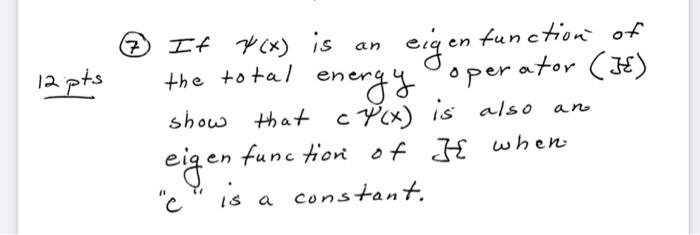 ⑦ If Ψ(x) is an eigenfunction of
12 pts the total energy operator (ℋ)
show that cΨ(x) is also an
eigenfunction of ℋ when
"c" is a constant.